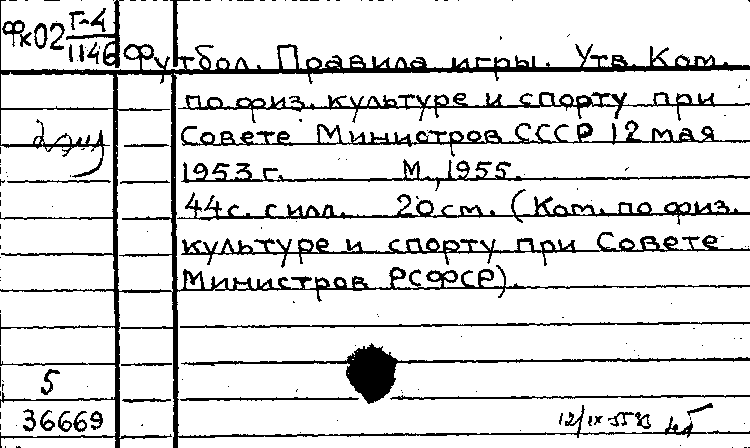 Фк02 Г-4
1146
Футбол. Правила игры. Утв. Ком.
по физ. культуре и спорту при
Совете Министров СССР 12 мая
2 экз
1953 г. М., 1955.
44 с. с илл. 20 см. (Ком. по физ.
культуре и спорту при Совете
Министров РСФСР).
5
36669
12/IX-55